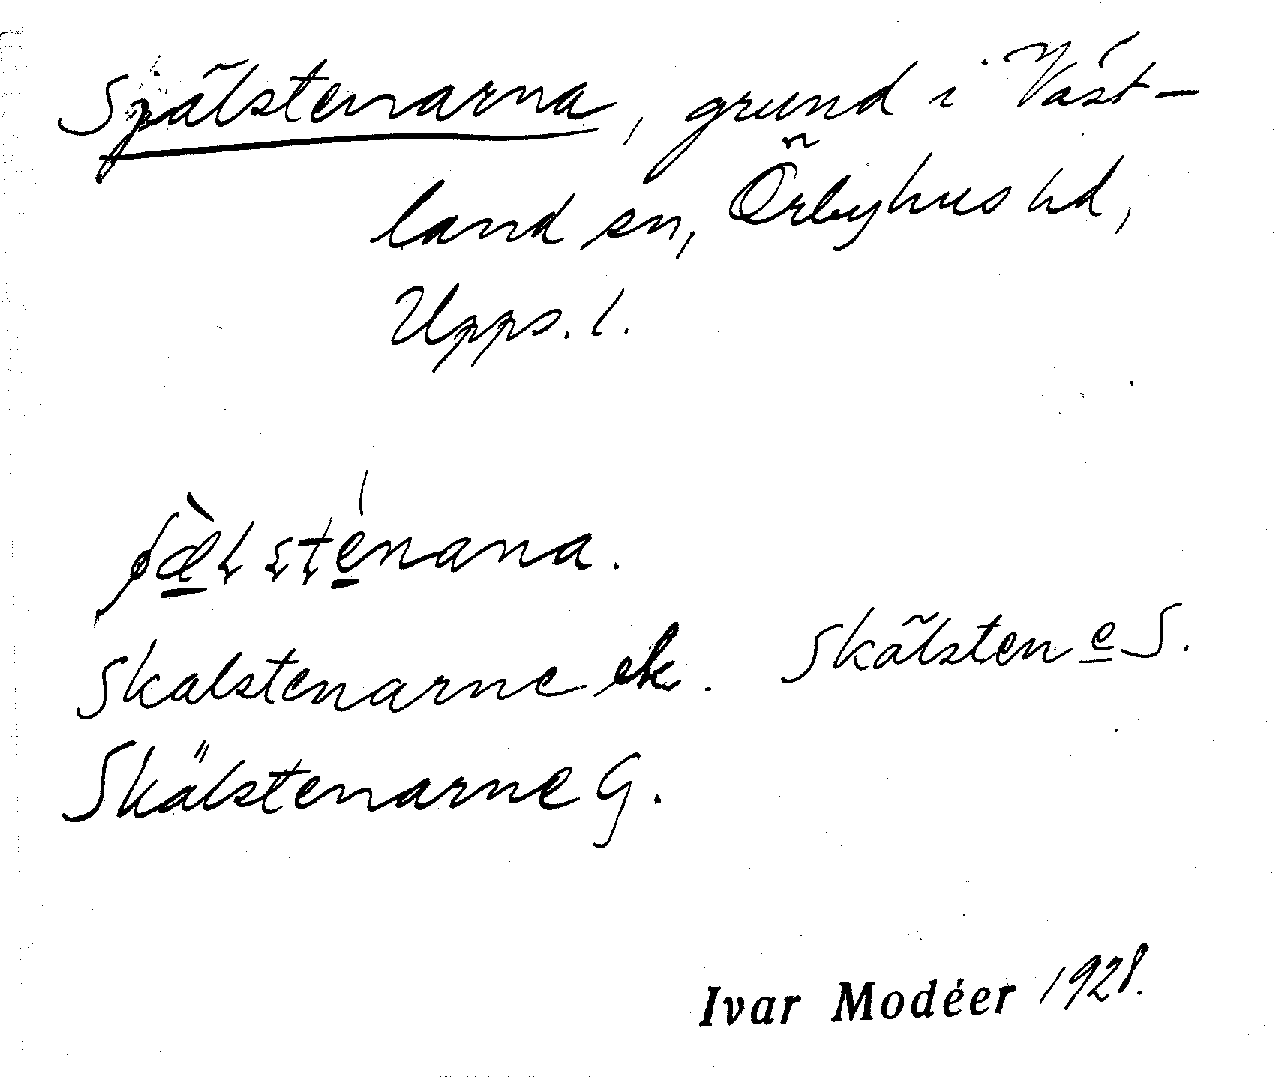 Spälstenarna, grund i Väst-
land sn, Örbyhus hd,
Upps. l.
Skalstenarne ek. Skälsten e S.
Skälstenarne G.
Ivar Modéer 1928.